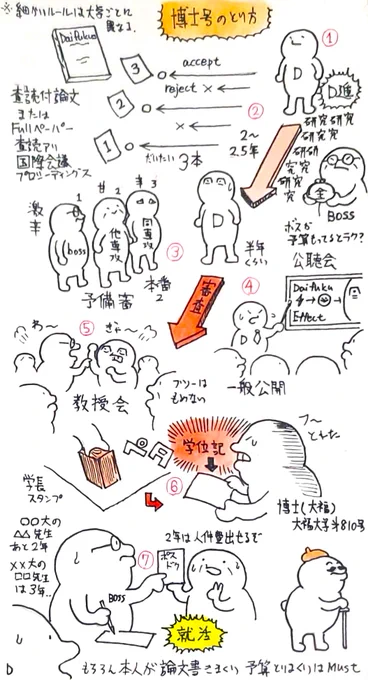 ※細かいルールは大学ごとに
異なる.
博士号のとり方
Daifuku
①
D進
accept
reject ×
②
×
3
2
1
だいたい 3本
査読付論文
または
Fullペーパー
査読アリ
国際会議
プロシーディングス
2〜
2.5年
D
研究研究
研究研究
研研
究究
研究
研究
金
BOSS
ボスが
予算もってるとラク?
激辛
#1
#2
#3
boss
他専攻
同専攻
予備審
本番
2
③
D
半年
くらい
審査
公聴会
④
Daifuku
Effect
D
一般公開
わ〜
⑤
ぎゃー
教授会
フツーは
もめない
学位記
⑥
学長
スタンプ
フ〜
とれた
博士(大福)
大福大学 斗810号
○○大の
△△先生
あと2年
××大の
□□先生
は3年..
⑦
ポスドク
2年は人件費出せるで
BOSS
就活
D
もちろん本人が論文書きまくり 予算とりまくりはMust